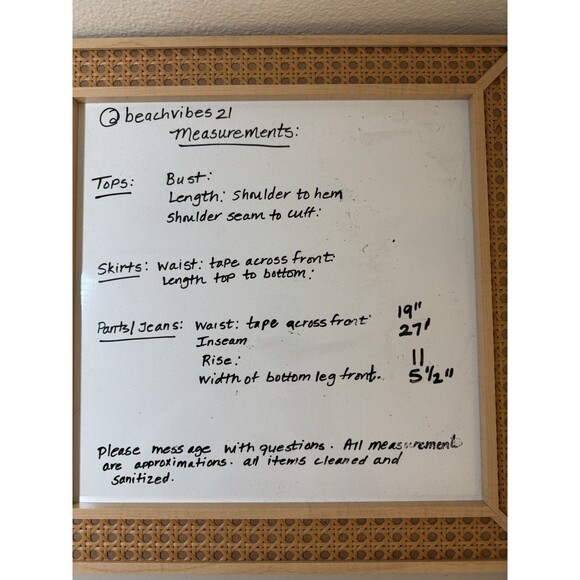 @beachvibes21
Measurements:
Tops: Bust:
Length: Shoulder to hem
Shoulder seam to cuff:
Skirts: Waist: tape across front:
Length top to bottom:
Pants/Jeans: Waist: tape across front: 19"
Inseam 27'
Rise: 11
Width of bottom leg front. 5 1/2"
Please message with questions. All measurements
are approximations. all items cleaned and
Sanitized.